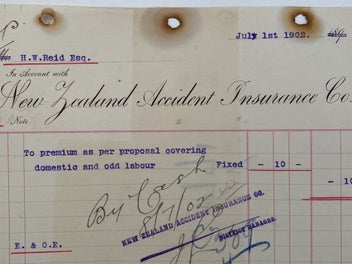 July 1st 1902.
H.W.Reid Esq.
In Account with
New Zealand Accident Insurance Co.
Note
To premium as per proposal covering
domestic and odd labour Fixed - 10 -
- 10
By Cash
8/7/02
NEW ZEALAND ACCIDENT INSURANCE CO.
DISTRICT MANAGER.
E. & O.E.